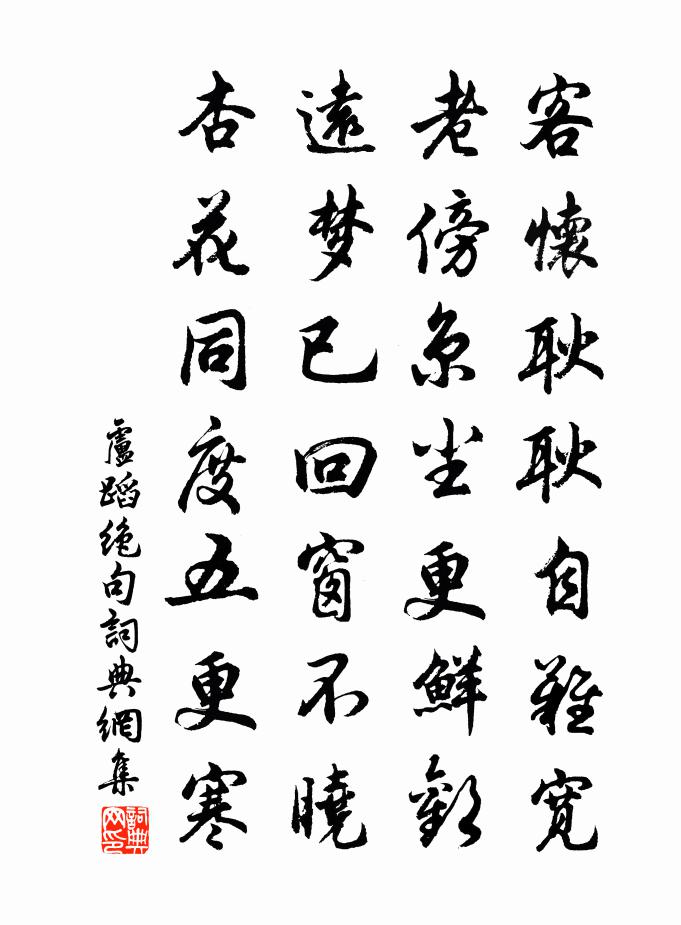 客懷耿耿自難寬
老傍京塵更鮮歡
遠梦已回窗不曉
杏花同度五更寒
盧蹈絶句詞典網集
詞典網印